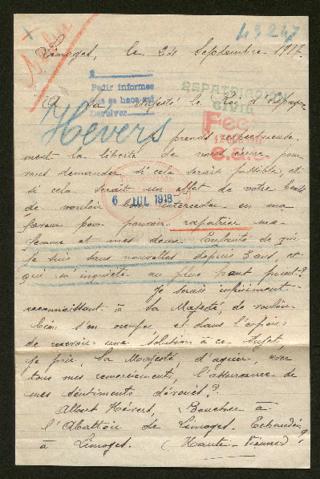 49247
Limoges, le 24 Septembre 1917.
2
Pedir informes
que se hace así
Devolver
REPATRIACION
CIVIL
A Sa Majesté le Roi d'Espagne
Hevers
Fece
S.G.G.
prends respectueuse
ment la liberté de vous écrire pour
vous demander si cela serait possible, et
si cela serait un effet de votre bonté
de vouloir bien intercéder en ma
6 JUL 1918
faveur pour pouvoir rapatrier ma
femme et mes deux enfants de qui
je suis sans nouvelles depuis 3 ans, et
qui m'inquiète au plus haut point?
Je serais infiniment
reconnaissant à Sa Majesté, de vouloir
bien s'en occuper et dans l'espoir
de recevoir une solution à ce sujet
je prie, Sa Majesté d'agréer, avec
tous mes remerciements, l'assurance de
mes sentiments dévoués?
Albert Hévers, Boucher à
l'Abattoir de Limoges. Echaudoir
à Limoges. (Haute-Vienne)